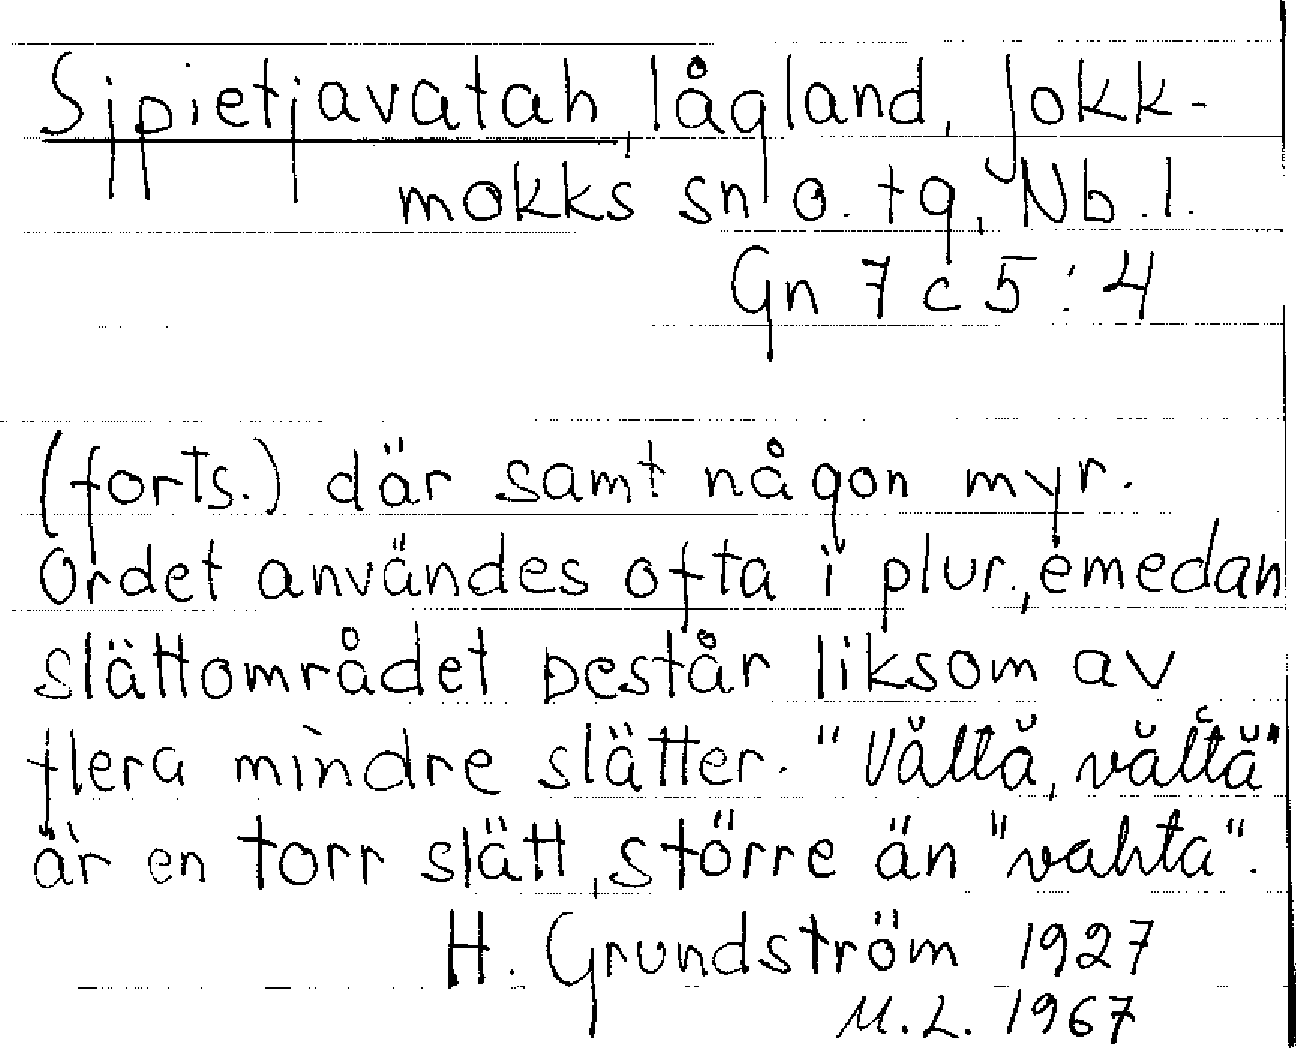 Sjpietjavatah, lågland, Jokk-
mokks sn o. tg, Nb. l.
Gn 7 c 5 : 4
(forts.) där samt någon myr.
Ordet användes ofta i plur., emedan
slättområdet består liksom av
flera mindre slätter. "
är en torr slätt, större än "vahta".
H. Grundström 1927
M.L. 1967